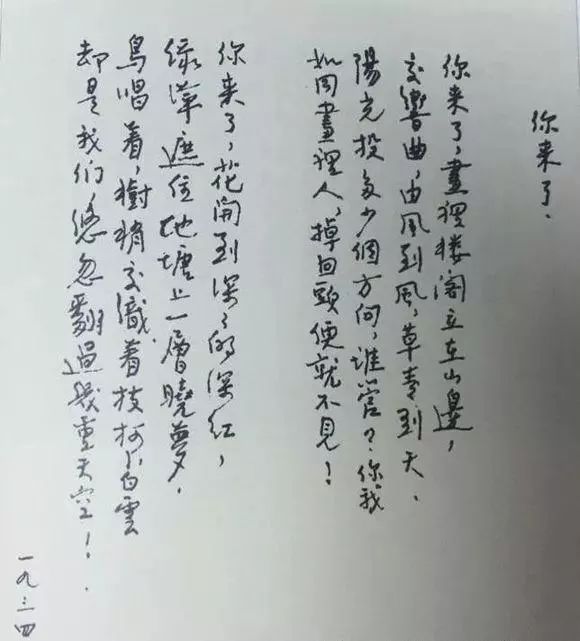 你来了.
你来了,畫裡楼阁立在山邊,
交響曲,由風到風,草青到天.
陽光投多少個方向,誰管?你,我
如同畫裡人,掉回頭便就不見!
你来了,花開到深深的深红,
绿萍遮住池塘上一層曉夢.
鳥唱着,樹梢交織着枝柯,白雲
却是我们,悠忽翻過幾重天空!
一九三四